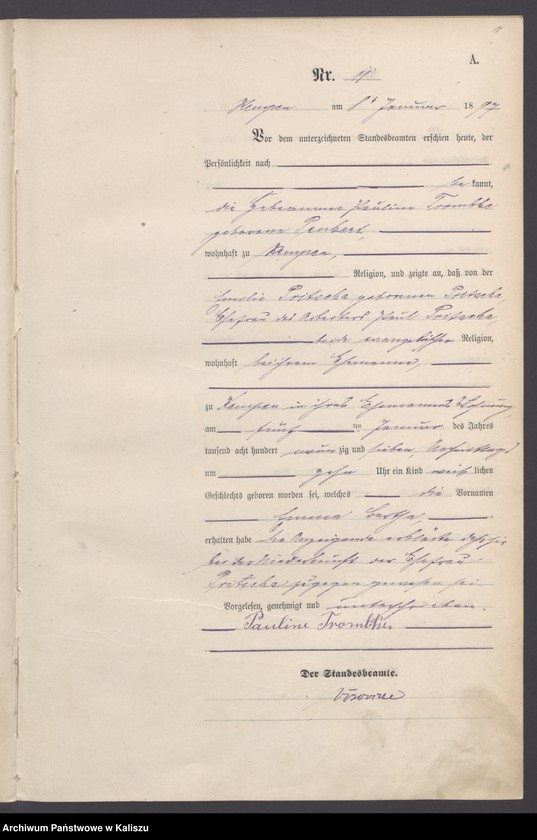 A.
Nr.
Kempen am 8t Januar 1897
Vor dem unterzeichneten Standesbeamten erschien heute, der
Persönlichkeit nach
be kannt,
die Hebamme Pauline Trombke
geborene
wohnhaft zu Kempen,
Religion, und zeigte an, daß von der
Emilie Pritschka geborenen
Ehefrau des Arbeiters Paul Pritschka
beide evangelischer Religion,
wohnhaft bei ihrem Ehemanne,
zu Kempen in ihres Ehemannes Wohnung
am ten Januar des Jahres
tausend acht hundert neun zig und sieben,
um zehn Uhr ein Kind weib lichen
Geschlechts geboren worden sei, welches die Vornamen
Emma Bertha,
erhalten habe Die Anzeigende erklärte daß sie
bei der Niederkunft der Ehefrau
Pritschka zugegen gewesen sei.
Vorgelesen, genehmigt und unterschrieben.
Pauline Trombke.
Der Standesbeamte.
Archiwum Państwowe w Kaliszu